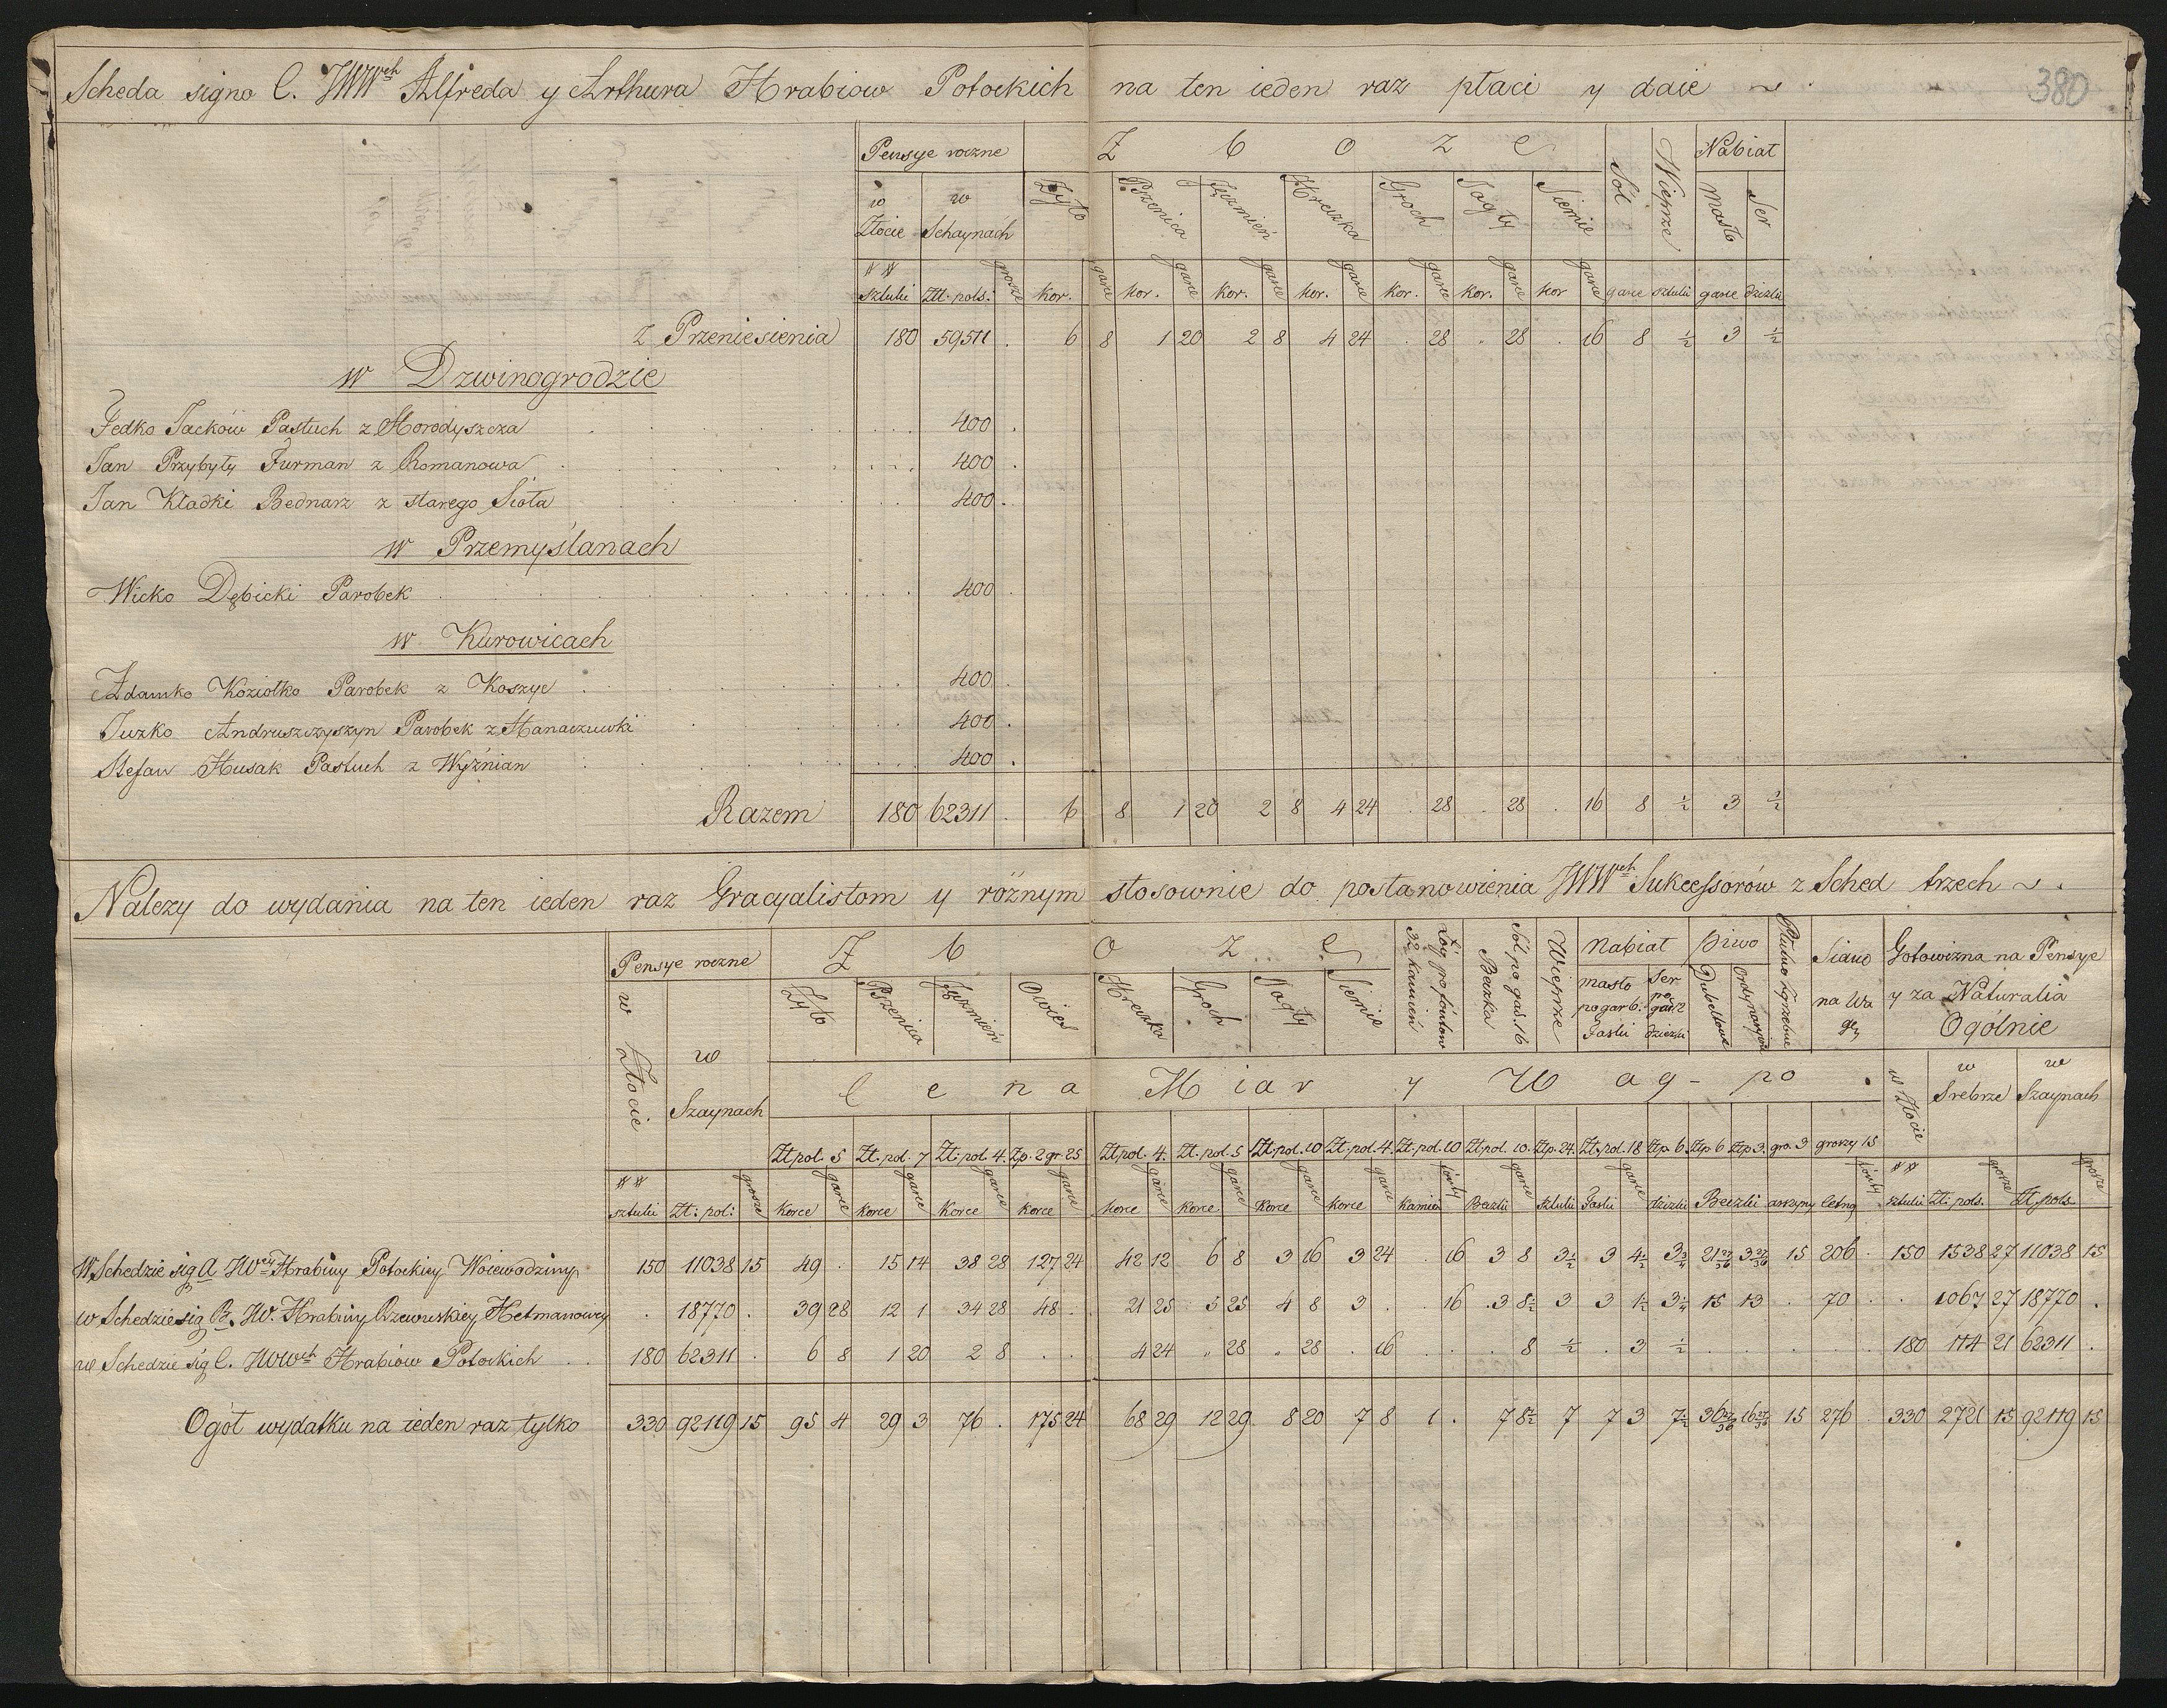 Scheda signo C. JWWch Alfreda y Arthura Hrabiow Potockich na ten ieden raz płaci y daie
380
Pensye roczne Z b o z e Sól Wieprze Nabiał
w Złocie w Schaynach Zyto Pszenica Jęzmień Hreczka Groch Jagły Siemie Masło Ser
## sztuki Złł. pols: grosze kor. garce kor. garce kor. garce kor. garce kor. garce kor. garce kor garce garce sztuki garce dzieżki
z Przeniesienia 180 59511 . 6 8 1 20 2 8 4 24 . 28 . 28 . 16 8 ½ 3 ½
w Dzwinogrodzie
Fedko Jacków Pastuch z Horodyszcza 400 .
Jan Przybyły Furman z Romanowa 400 .
Jan Kładki Bednarz z starego Sioła 400 .
w Przemyślanach
Wicko Dębicki Parobek 400 .
w Kurowicach
Adamko Koziołko Parobek z Koszyc 400 .
Juzko Andruszczyszyn Parobek z Hanaczuwki 400 .
Stefan Husak Pastuch z Wyżnian 400 .
Razem 180 62311 . 6 8 1 20 2 8 4 24 . 28 . 28 . 16 8 ½ 3 ½
Nalezy do wydania na ten ieden raz Gracyalistom y róznym stosownie do postanowienia JWWch Sukcessorów z Sched trzech
Pensye roczne Z b o z e Łóy po funtow 32 kamień Sól po gar. 16 Beczka Wieprze Nabiał piwo Płutno Zgrzebne Siano na Wagę Gotowizna na Pensye y za Naturalia Ogólnie
w Złocie w Szaynach Zyto Pszenica Jęzmień Owies Hreczka Groch Jagły Siemie masło po gar 6. Faski Ser po gar. 2 dzieżki Dubeltowe Ordynaryine
C e n a M i a r y W a g - po
w Złocie w Srebrze w Szaynach
Zł. pol. 5 Zł. pol. 7 Zł. pol. 4. Zp. 2 gr. 25 Zł. pol. 4. Zł. pol. 5 Zł. pol. 10 Zł. pol. 4. Zł. pol. 10 Zł. pol. 10. Złp. 24. Zł. pol. 18 Złp. 6. Złp. 6 Złp 3. gro. 9 groszy 15
## sztuki Zł: pol: grosze korce garce korce garce Korce garce korce garce korce garce korce garce korce garce korce garce kamień funty Beczki garce sztuki Faski garce dzieżki Beczki arszyny cetng funty ## sztuki Zł: pols. grosze Zł. pols grosze
W Schedzie sig A JWey Hrabiny Potockiey Woiewodziny 150 11038 15 49 . 15 14 38 28 127 24 42 12 6 8 3 16 3 24 . 16 3 8 3½ 3 4½ 3¾ 21 3 15 206 . 150 1538 27 11038 15
w Schedzie sig B. JW. Hrabiny Rzewuskiey Hetmanowey . 18770 . 39 28 12 1 34 28 48 . 21 25 5 25 4 8 3 . . 16 3 8½ 3 3 1½ 3¼ 15 13 . 70 . . 1067 27 18770 .
w Schedzie sig C. JWWch Hrabiow Potockich 180 62311 . 6 8 1 20 2 8 . . 4 24 . 28 . 28 . 16 . . . 8 ½ . 3 ½ . . . . . 180 114 21 62311 .
Ogół wydatku na ieden raz tylko 330 92119 15 95 4 29 3 76 . 175 24 68 29 12 29 8 20 7 8 1 . 7 8½ 7 7 3 7½ 36 16 15 276 . 330 2721 15 92119 15